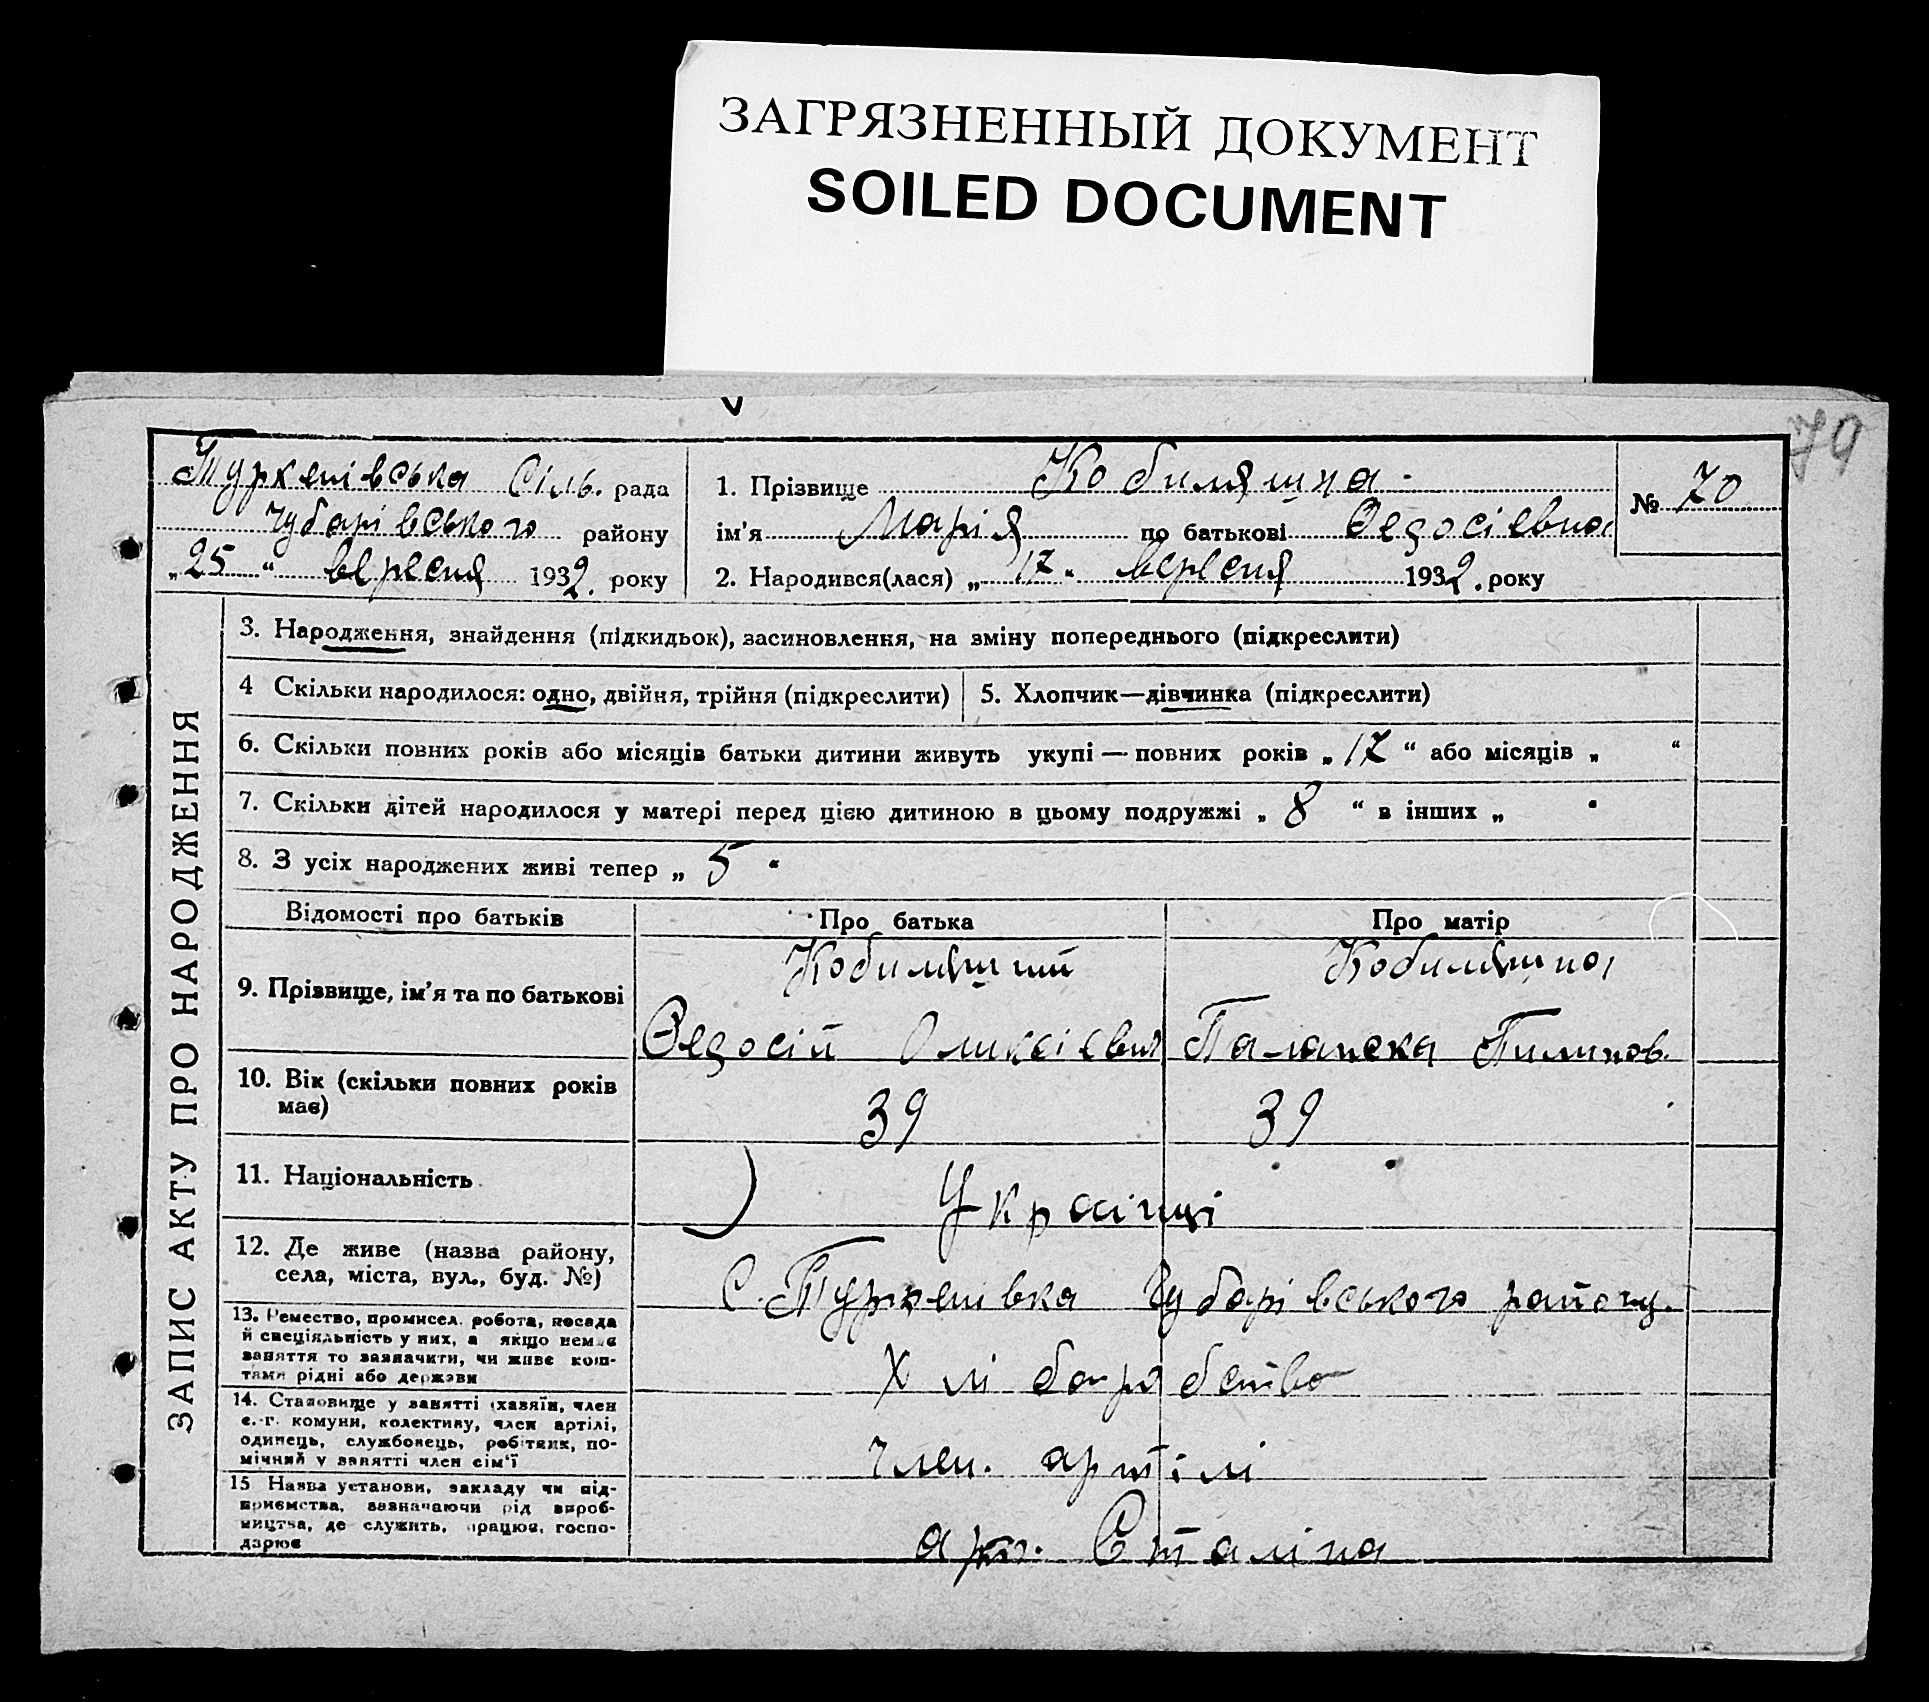 ЗАГРЯЗНЕННЫЙ ДОКУМЕНТ
SOILED DOCUMENT
79
Туркенівська Сіль. рада
Чубарівського району
„25“ вересня 1932. року
1. Прізвище Кобиляшна
ім'я Марія по батькові Федосієвна
2. Народився(лася) „17“ вересня 1932. року
№ 70
ЗАПИС АКТУ ПРО НАРОДЖЕННЯ
3. Народження, знайдення (підкидьок), засиновлення, на зміну попереднього (підкреслити)
4 Скільки народилося: одно, двійня, трійня (підкреслити)
5. Хлопчик—дівчинка (підкреслити)
6. Скільки повних років або місяців батьки дитини живуть укупі — повних років „17“ або місяців „ “
7. Скільки дітей народилося у матері перед цією дитиною в цьому подружжі „8“ в інших „ “
8. З усіх народжених живі тепер „5“
Відомості про батьків
Про батька
Про матір
9. Прізвище, ім'я та по батькові
Кобиляшний
Федосій
Кобиляшна
Палажка Пилипов.
10. Вік (скільки повних років
має)
39
39
11. Національність
Українці
12. Де живе (назва району,
села, міста, вул., буд. №)
С. Туркенівка Чубарівського району.
13. Ремество, промисел, робота, посада
й спеціяльність у них, а якщо немає
заняття то зазначити, чи живе кош-
тами рідні або держави
Хліборобство
14. Становище у занятті (хазяїн, член
с.-г. комуни, колективу, член артілі,
одинець, службовець, робітник, по-
мічний у занятті член сім'ї
член. артілі
15 Назва установи, закладу чи під-
приємства, зазначаючи рід вироб-
ництва, де служить, працює, госпо-
дарює
арт. Сталіна